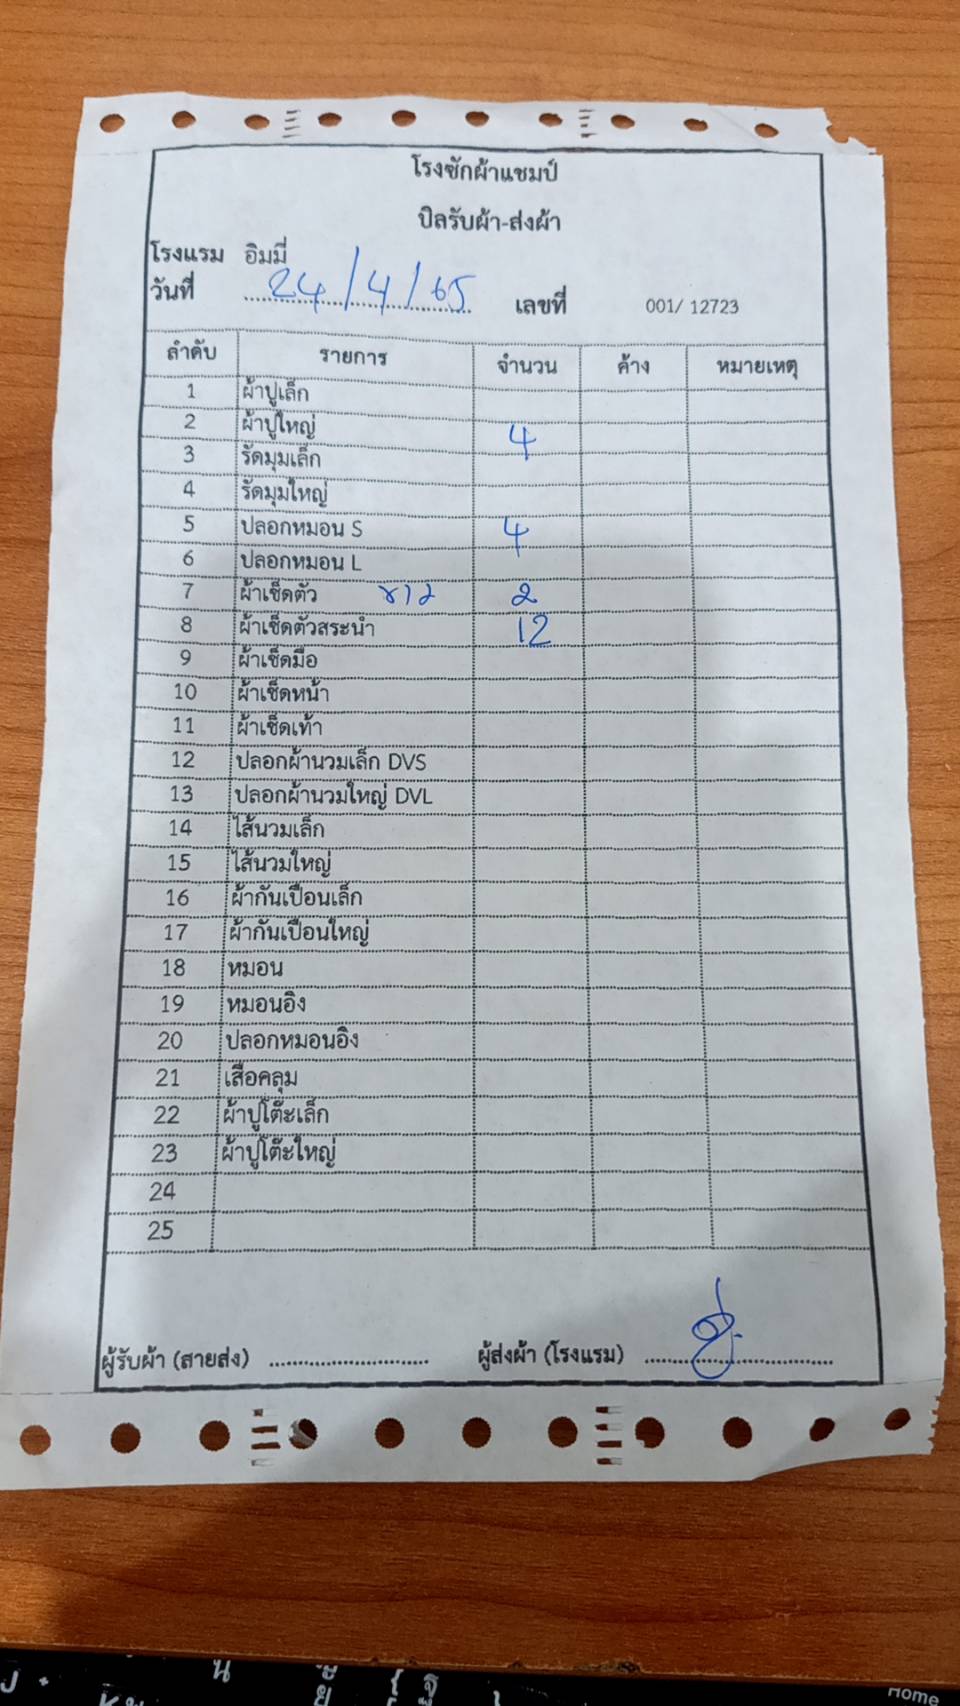 โรงซักผ้าแชมป์
บิลรับผ้า-ส่งผ้า
โรงแรม อิมมี่
วันที่ 24/4/65 เลขที่ 001/ 12723
ลำดับ รายการ จำนวน ค้าง หมายเหตุ
1 ผ้าปูเล็ก
2 ผ้าปูใหญ่ 4
3 รัดมุมเล็ก
4 รัดมุมใหญ่
5 ปลอกหมอน S 4
6 ปลอกหมอน L
7 ผ้าเช็ดตัว ขาว 2
8 ผ้าเช็ดตัวสระน้ำ 12
9 ผ้าเช็ดมือ
10 ผ้าเช็ดหน้า
11 ผ้าเช็ดเท้า
12 ปลอกผ้านวมเล็ก DVS
13 ปลอกผ้านวมใหญ่ DVL
14 ไส้นวมเล็ก
15 ไส้นวมใหญ่
16 ผ้ากันเปื้อนเล็ก
17 ผ้ากันเปื้อนใหญ่
18 หมอน
19 หมอนอิง
20 ปลอกหมอนอิง
21 เสื้อคลุม
22 ผ้าปูโต๊ะเล็ก
23 ผ้าปูโต๊ะใหญ่
24
25
ผู้รับผ้า (สายส่ง) ผู้ส่งผ้า (โรงแรม)
Home